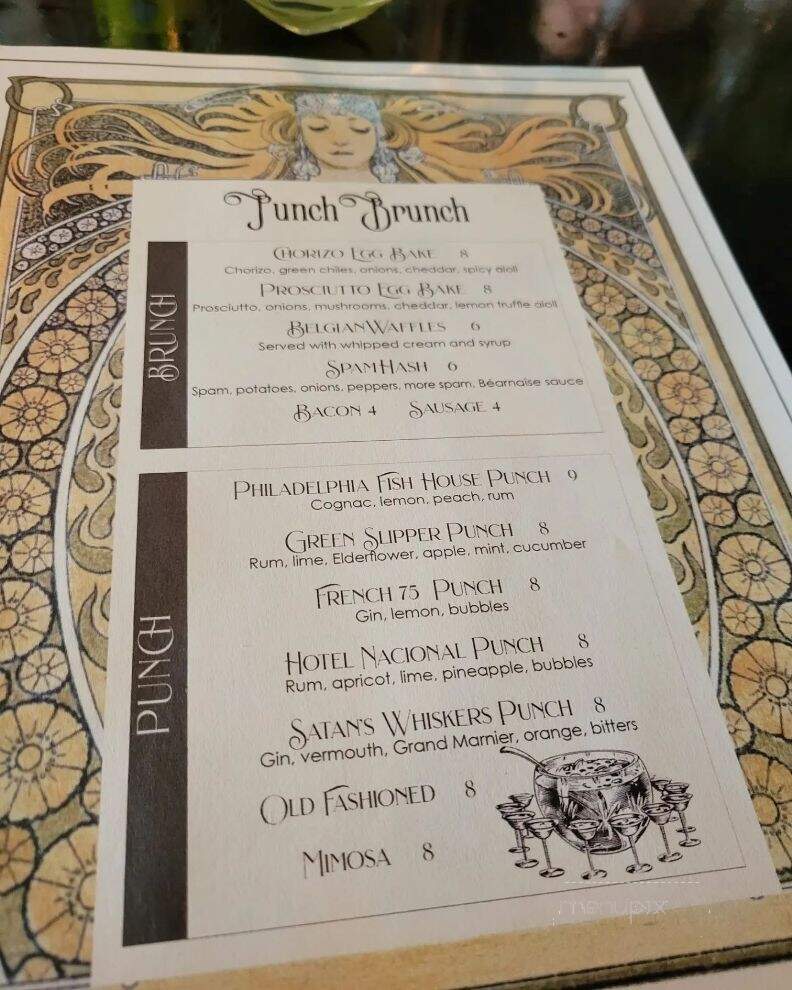 Punch Brunch
BRUNCH
Chorizo Egg Bake 8
Chorizo, green chiles, onions, cheddar, spicy aioli
Prosciutto Egg Bake 8
Prosciutto, onions, mushrooms, cheddar, lemon truffle aioli
Belgian Waffles 6
Served with whipped cream and syrup
Spam Hash 6
Spam, potatoes, onions, peppers, more spam, Béarnaise sauce
Bacon 4 Sausage 4
PUNCH
Philadelphia Fish House Punch 9
Cognac, lemon, peach, rum
Green Slipper Punch 8
Rum, lime, Elderflower, apple, mint, cucumber
French 75 Punch 8
Gin, lemon, bubbles
Hotel Nacional Punch 8
Rum, apricot, lime, pineapple, bubbles
Satan's Whiskers Punch 8
Gin, vermouth, Grand Marnier, orange, bitters
Old Fashioned 8
Mimosa 8
menupix